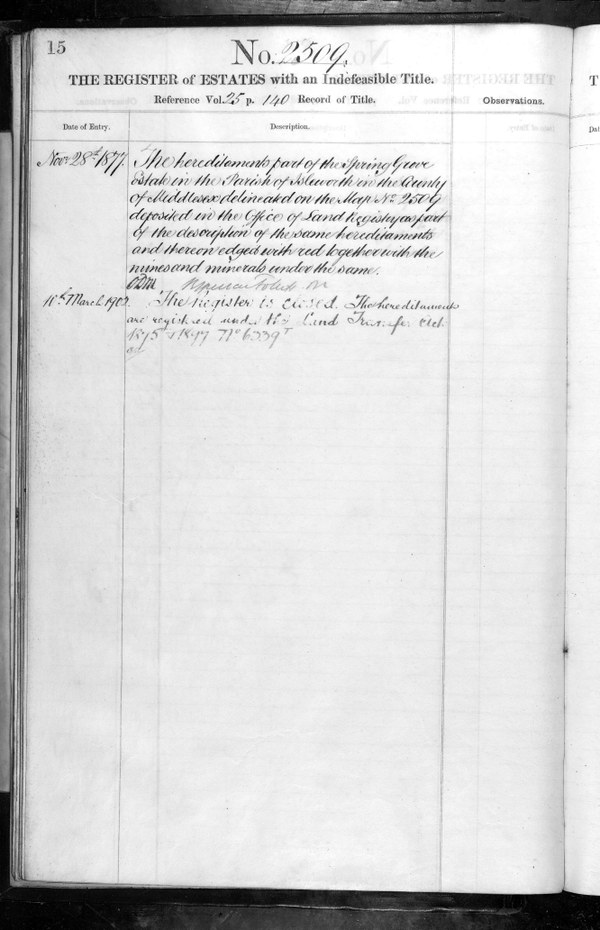 15
No. 2509.
THE REGISTER of ESTATES with an Indefeasible Title.
Reference Vol. 25 p. 140 Record of Title.
Observations.
Date of Entry.
Description.
Novr 28th 1877. The hereditaments part of the Spring Grove
Estate in the Parish of Isleworth in the County
of Middlesex delineated on the Map No 2509
deposited in the Office of Land Registry as part
of the description of the same hereditaments
and thereon edged with red together with the
mines and minerals under the same.
March The Register is closed. The hereditaments
are registered under the Land Transfer Acts
1875 & 1897 No 6339